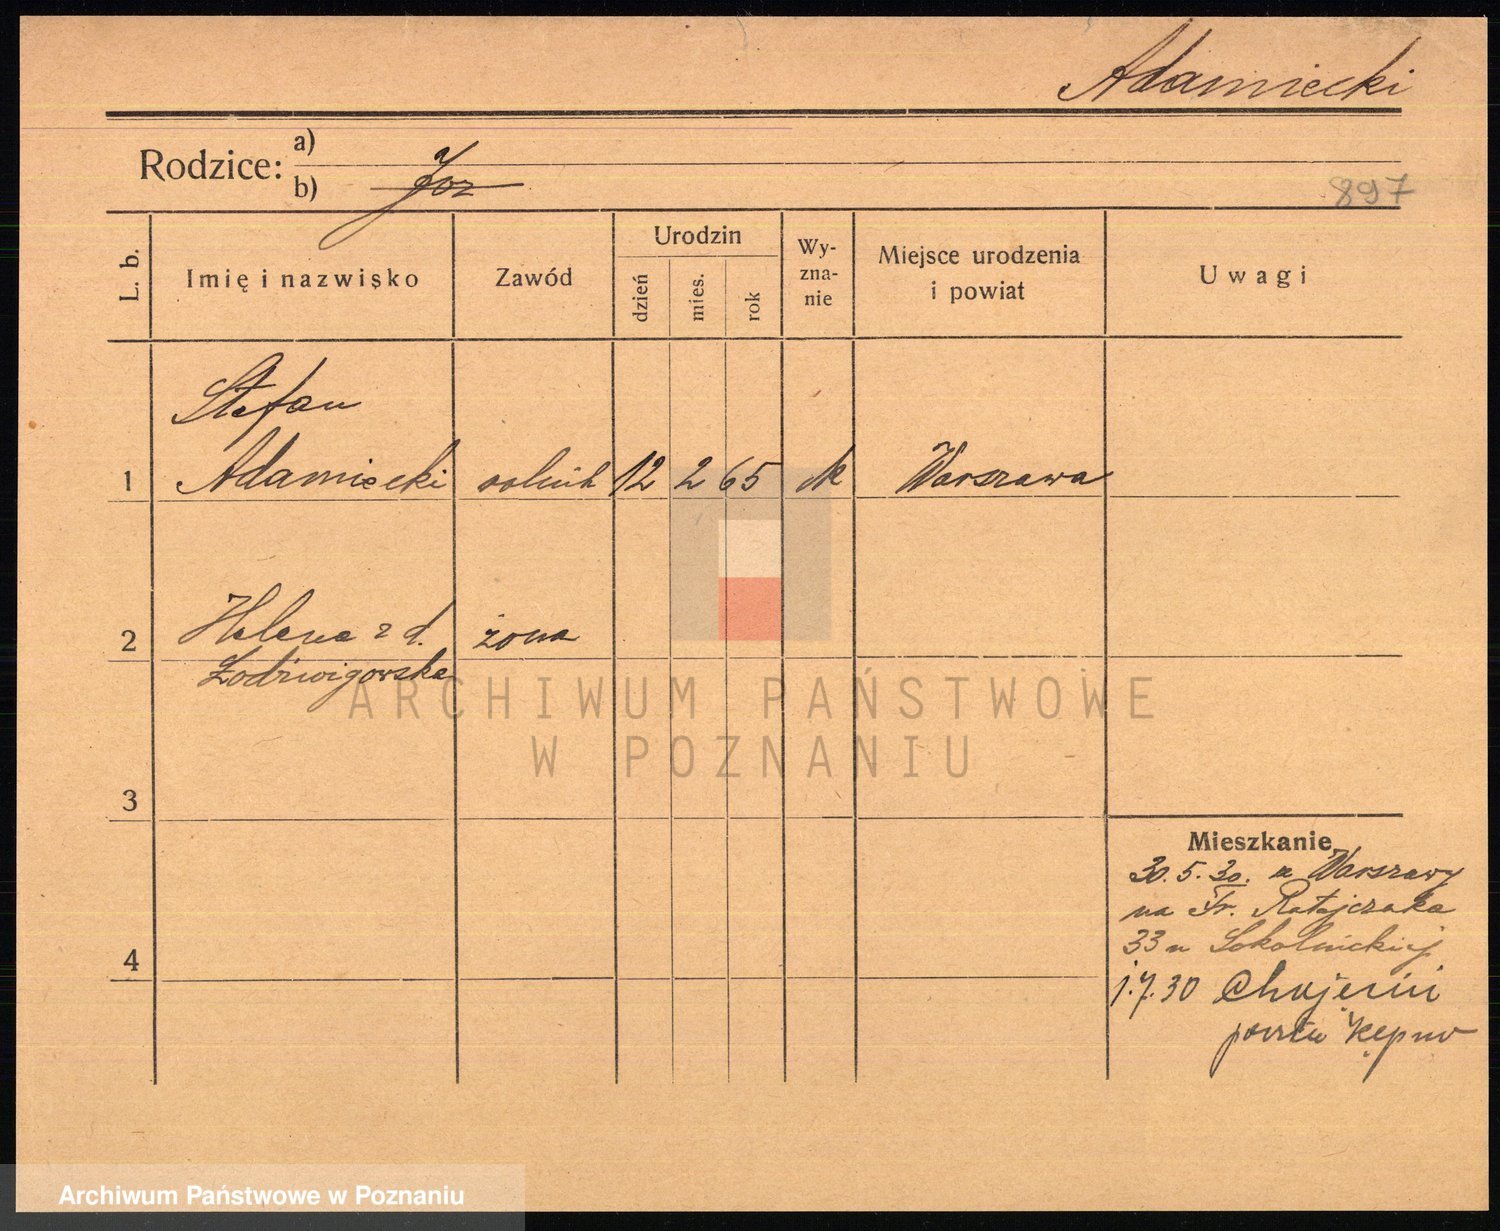 Adamiecki
Rodzice:
a)
b) Joz
897
L. b.
Imię i nazwisko
Zawód
Urodzin
dzień
mies.
rok
Wy-
zna-
nie
Miejsce urodzenia
i powiat
Uwagi
Stefan
1 Adamiecki rolnik 12 2 65 rk Warszawa
2 Helena z d. żona
Łodzwigowska
3
4
Mieszkanie
30.5.30. z Warszawy
na Fr. Ratajczaka
33 u Sokolnickiej
1.7.30 Chojęcin
poczta Kępno
ARCHIWUM PAŃSTWOWE
W POZNANIU
Archiwum Państwowe w Poznaniu